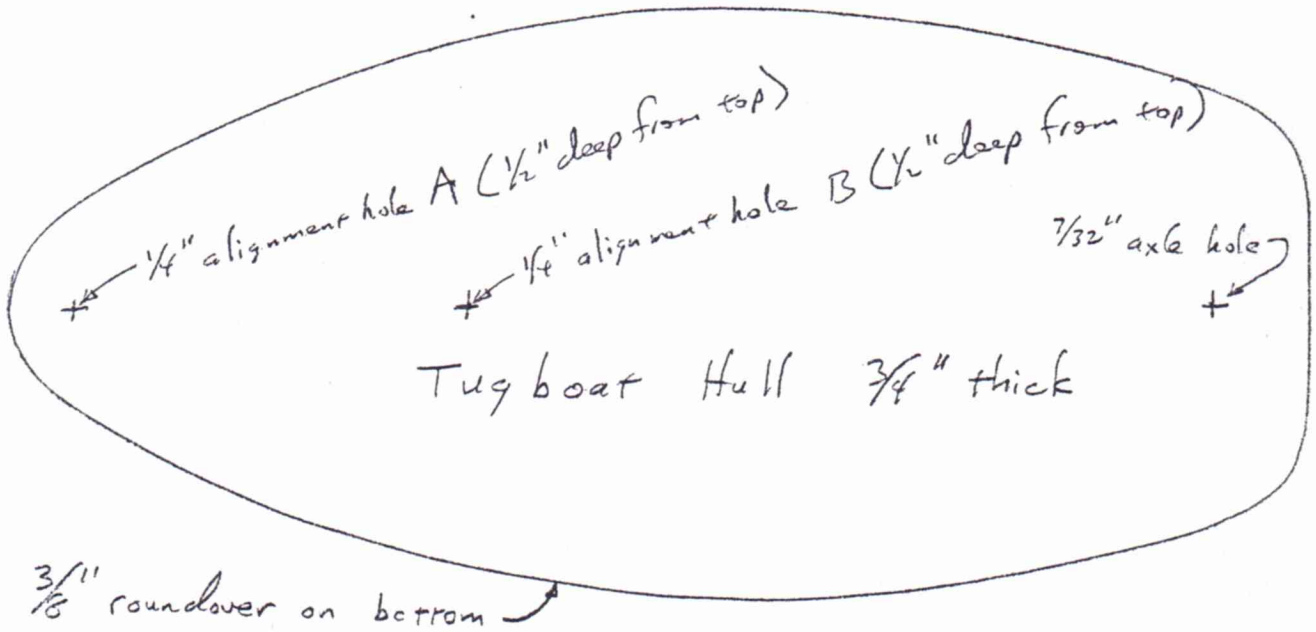 1/4" alignment hole A (1/2" deep from top)
1/4" alignment hole B (1/2" deep from top)
7/32" axle hole
Tugboat Hull 3/4" thick
3/8" roundover on bottom